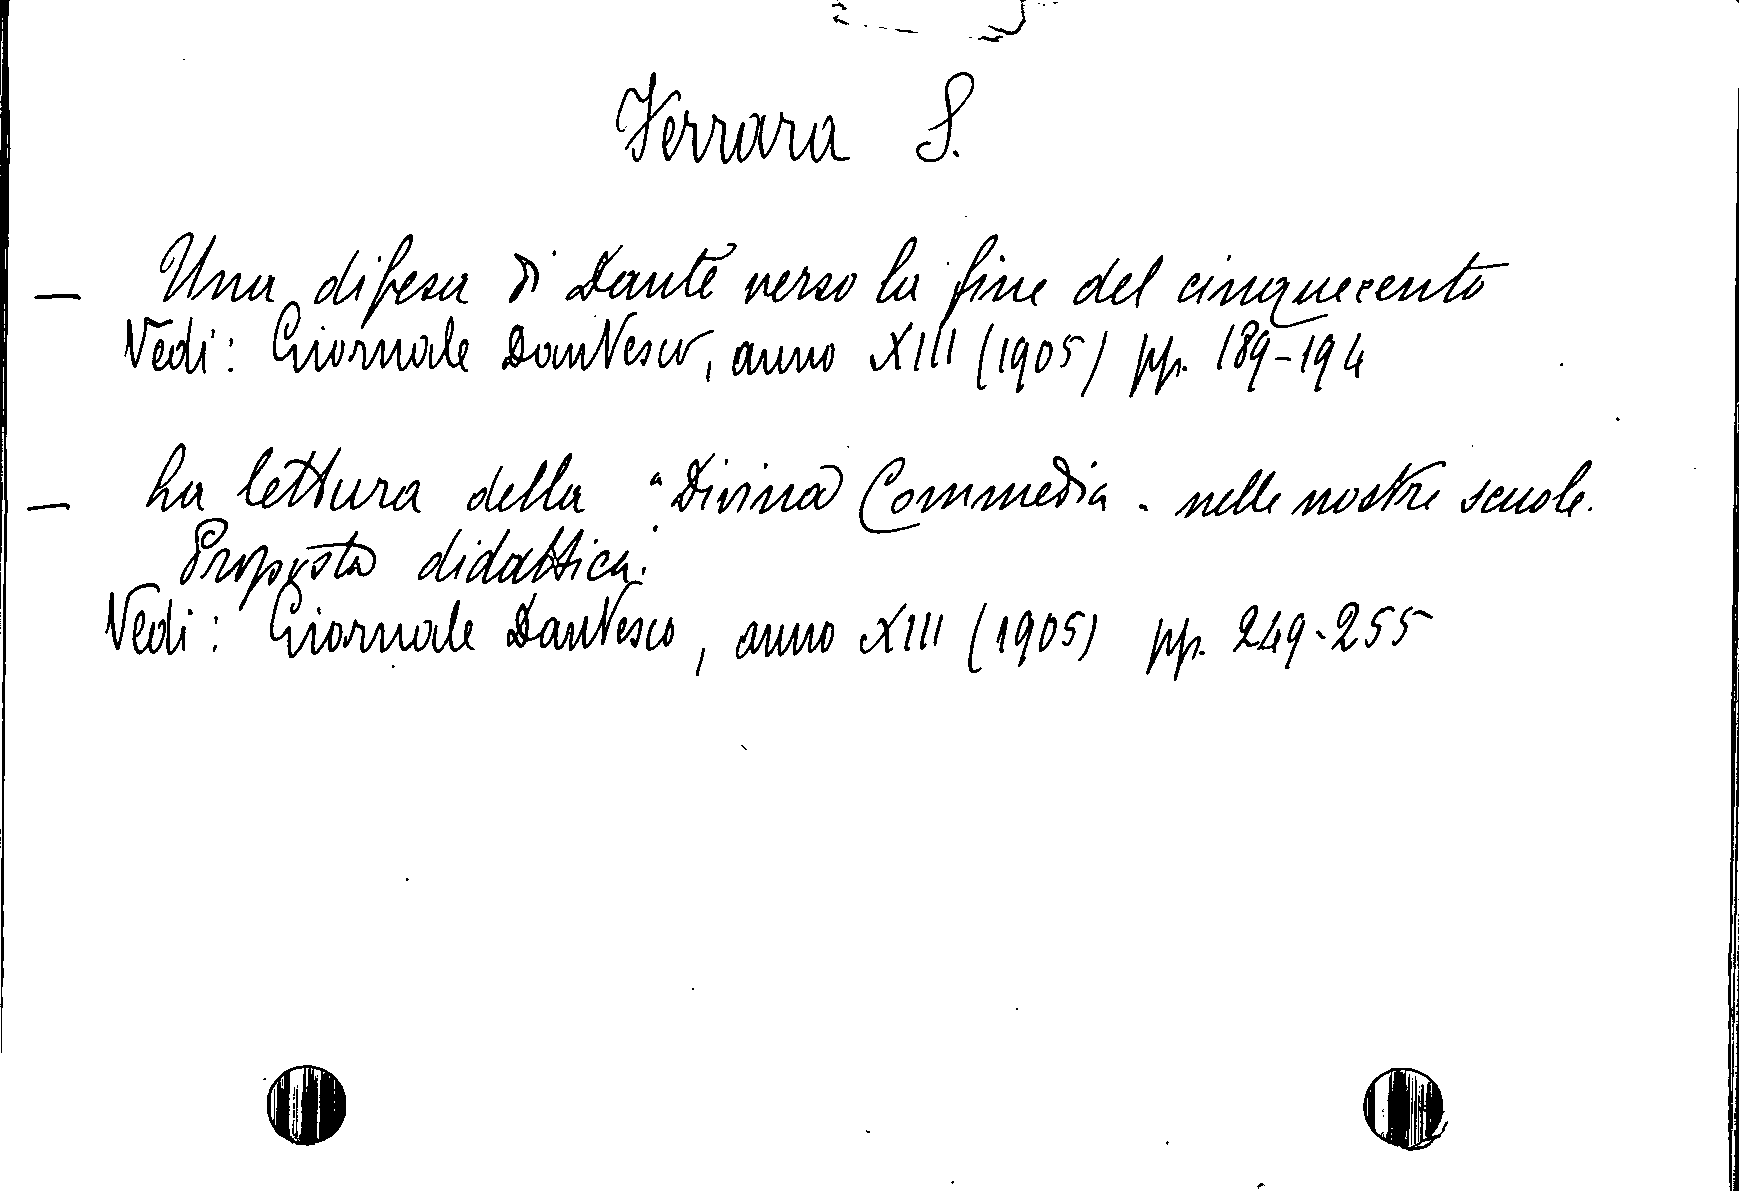 Ferrara S.
— Una difesa di Dante verso la fine del cinquecento
Vedi: Giornale Dantesco, anno XIII (1905) pp. 189-194
— La lettura della "Divina Commedia" nelle nostre scuole.
Proposta didattica.
Vedi: Giornale Dantesco, anno XIII (1905) pp. 249-255